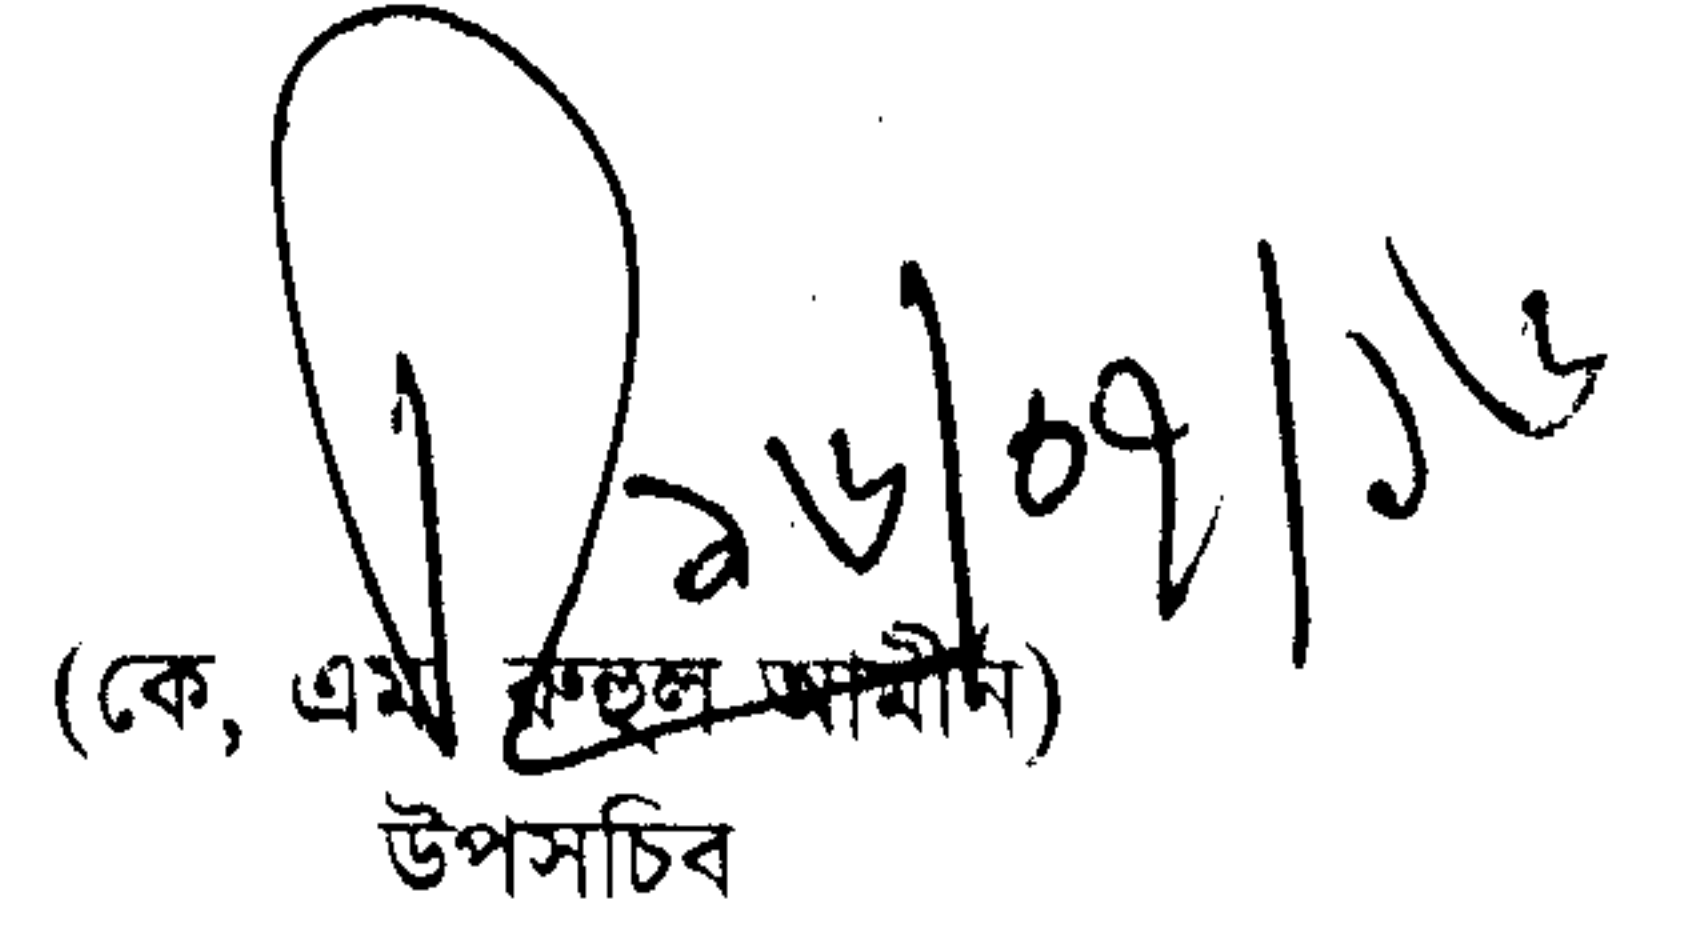 ২৬/০৭/১৬
(কে, এম রুহুল আমীন)
উপসচিব